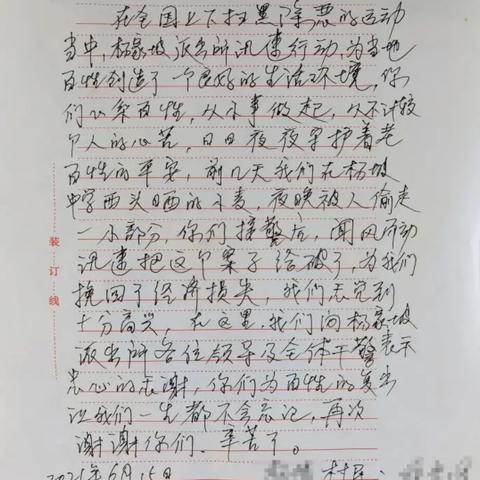 在全国上下扫黑除恶的运动
当中,杨家坡派出所迅速行动,为当地
百姓创造了一个良好的生活环境,你
们心系百姓,从小事做起,从不计较
个人的心苦,日日夜夜守护着老
百姓的平安,前几天我们在杨坡
中学西头晒的小麦,夜晚被人偷走
一小部分,你们接警后,闻风而动
迅速把这个案子给破了,为我们
挽回了经济损失,我们感觉到
十分高兴,在这里,我们向杨家坡
派出所各位领导及全体干警表示
忠心的感谢,你们为百姓的付出
让我们一生都不会忘记,再次
谢谢你们、辛苦了。
2021年6月15日 村民:
装订线